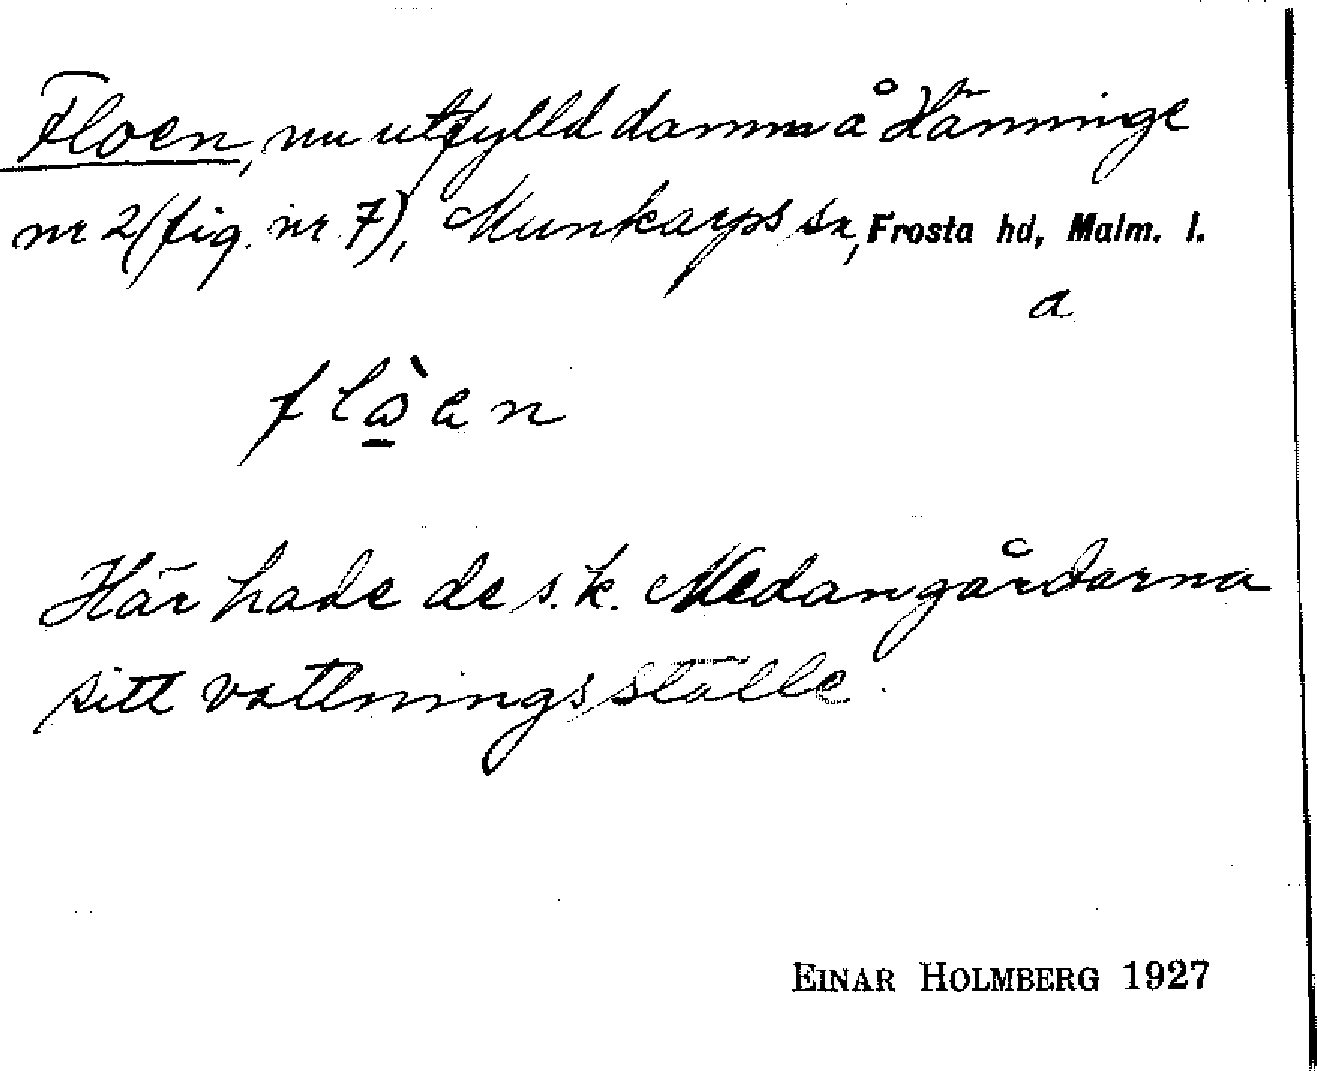 Floen, nu utfylld damm å Hänninge
nr 2 (fig. nr 7), Munkarps sn, Frosta hd, Malm. l.
a
Här hade de s.k. Medangårdarna
sitt vattningsställe.
EINAR HOLMBERG 1927